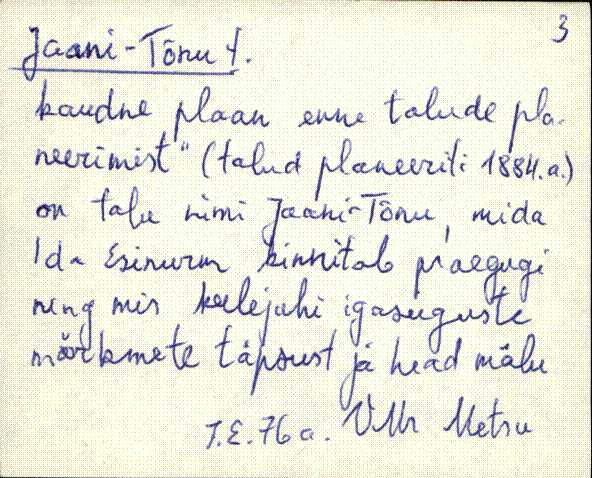 3
Jaani-Tõnu t.
kaudne plaan enne talude pla-
neerimist" (talud planeeriti 1884.a.)
on talu nimi Jaani-Tõnu, mida
Ida Esinurm kinnitab praegugi
ning mis keelejuhi igasuguste
märkmete täpsust ja head mälu
J.E.76 a. VMr Metsu